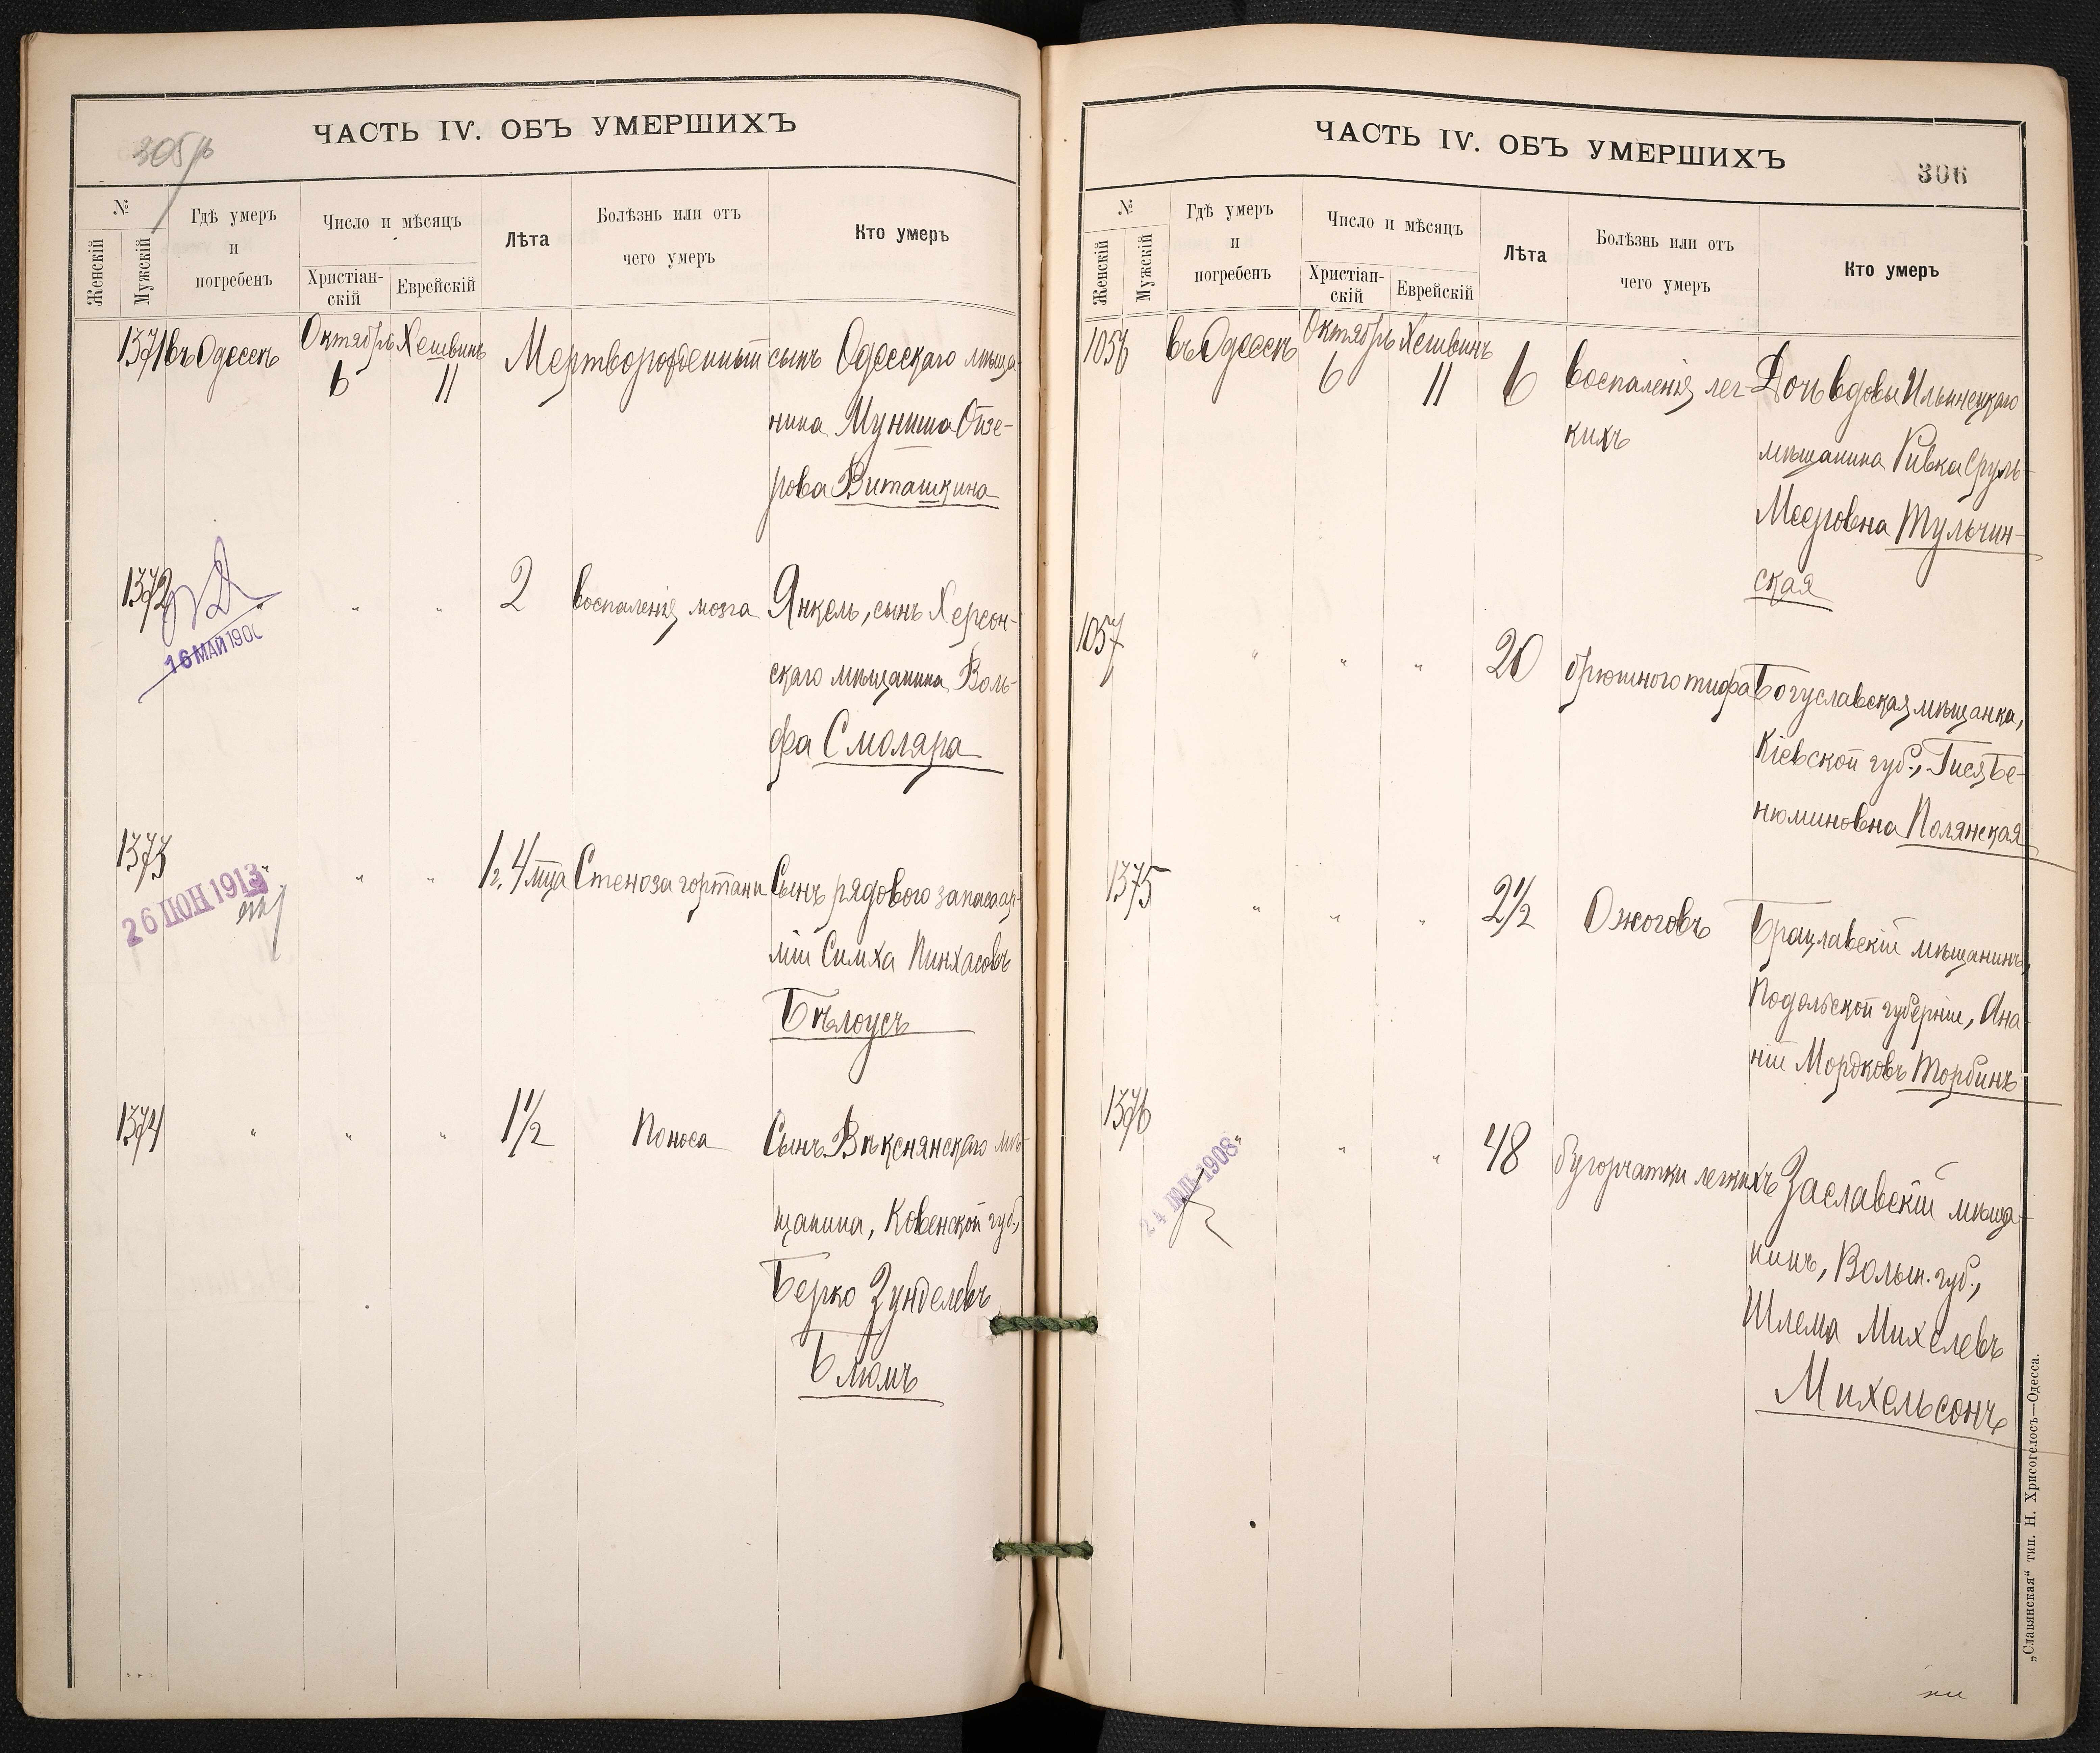 ЧАСТЬ IV. ОБЪ УМЕРШИХЪ
№
Женскій
Мужскій
Гдѣ умеръ
и
погребенъ
Число и мѣсяцъ
Христіан-
скій
Еврейскій
Лѣта
Болѣзнь или отъ
чего умеръ
Кто умеръ
1371 въ Одессѣ Октябрь Хешвинъ Мертворожденный сынъ Одесскаго мѣща-
6 11
нина Муниша Ойзе-
рова Виташкина
1372 " " 2 воспаленія мозга Янкель, сынъ Херсон-
скаго мѣщанина Воль-
фа Смоляра
16 МАЙ 190
1373 " " " 1 г. 4 мца Стеноза гортани Сынъ рядового запаса ар-
міи Симха Пинхасовъ
Бѣлоусъ
26 ІЮН 1913
1374 " " " 1 1/2 Поноса Сынъ Вѣкснянскаго мѣ-
щанина, Ковенской губ.,
Берко Зунделевъ
Блюмъ
ЧАСТЬ IV. ОБЪ УМЕРШИХЪ
306
№
Женскій
Мужскій
Гдѣ умеръ
и
погребенъ
Число и мѣсяцъ
Христіан-
скій
Еврейскій
Лѣта
Болѣзнь или отъ
чего умеръ
Кто умеръ
1056 въ Одессѣ Октябрь Хешвинъ 6 воспаленія лег- Дочь вдовы Ильинецкаго
6 11
кихъ мѣщанина Ривка Сруль-
Мееровна Тульчин-
ская
1057 " " " 20 брюшного тифа Богуславская мѣщанка,
Кіевской губ., Гися Бе-
нюминовна Полянская
1375 " " " 2 1/2 Ожоговъ Брацлавскій мѣщанинъ,
Подольской губерніи, Ана-
ній Мордковъ Торбинъ
1376 " " " 48 бугорчатки легкихъ Заславскій мѣща-
нинъ, Волын. губ.,
Шлема Михелевъ
Михельсонъ
„Славянская“ тип. Н. Хрисогелосъ—Одесса.